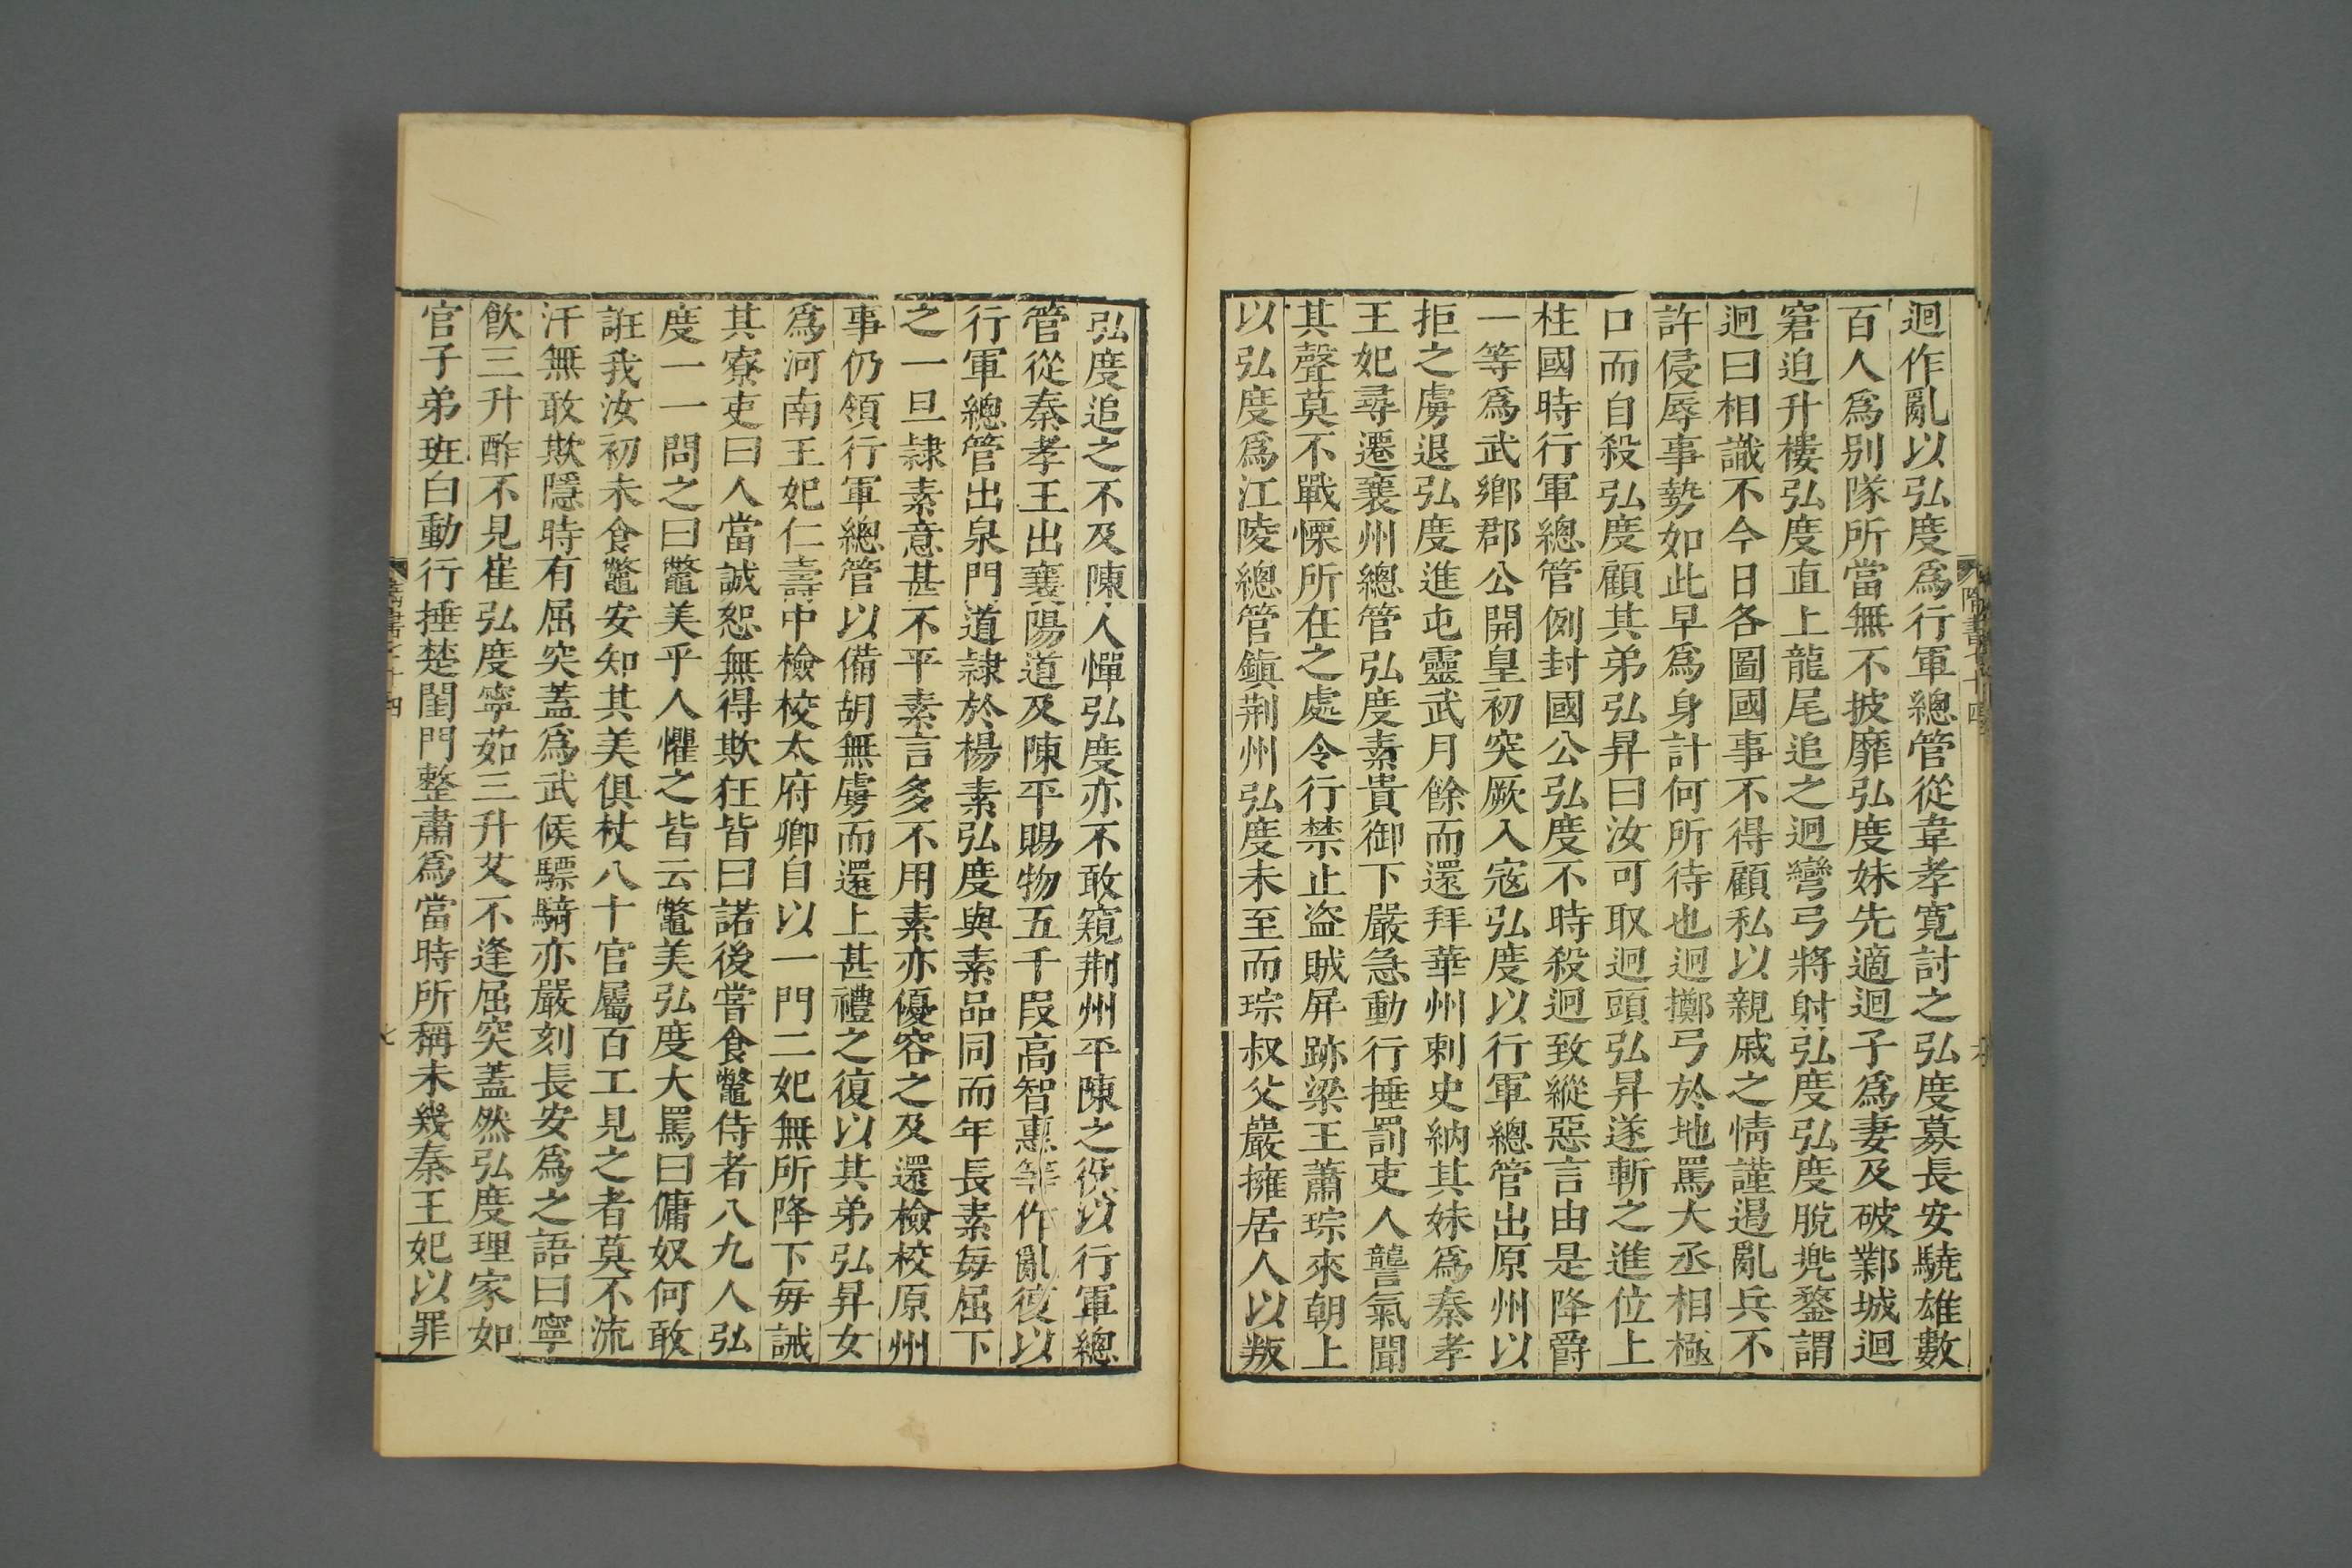 迥作亂以弘度爲行軍總管從韋孝寬討之弘度募長安驍雄數
百人爲別隊所當無不披靡弘度妹先適迥子爲妻及破鄴城迥
窘迫升樓弘度直上龍尾追之迥彎弓將射弘度弘度脫兜鍪謂
迥曰相識不今日各圖國事不得顧私以親戚之情謹遏亂兵不
許侵辱事勢如此早爲身計何所待也迥擲弓於地罵大丞相極
口而自殺弘度顧其弟弘昇曰汝可取迥頭弘昇遂斬之進位上
柱國時行軍總管例封國公弘度不時殺迥致縱惡言由是降爵
一等爲武鄉郡公開皇初突厥入寇弘度以行軍總管出原州以
拒之虜退弘度進屯靈武月餘而還拜華州刺史納其妹爲秦孝
王妃尋遷襄州總管弘度素貴御下嚴急動行捶罰吏人讋氣聞
其聲莫不戰慄所在之處令行禁止盜賊屏跡梁王蕭琮來朝上
以弘度爲江陵總管鎭荆州弘度未至而琮叔父巖擁居人以叛
弘度追之不及陳人憚弘度亦不敢窺荆州平陳之役以行軍總
管從秦孝王出襄陽道及陳平賜物五千段高智惠等作亂復以
行軍總管出泉門道隷於楊素弘度與素品同而年長素每屈下
之一旦隷素意甚不平素言多不用素亦優容之及還檢校原州
事仍領行軍總管以備胡無虜而還上甚禮之復以其弟弘昇女
爲河南王妃仁壽中檢校太府卿自以一門二妃無所降下每誡
其寮吏曰人當誠恕無得欺狂皆曰諾後嘗食鼈侍者八九人弘
度一一問之曰鼈美乎人懼之皆云鼈美弘度大罵曰傭奴何敢
誑我汝初未食鼈安知其美俱杖八十官屬百工見之者莫不流
汗無敢欺隱時有屈突蓋爲武候驃騎亦嚴刻長安爲之語曰寧
飮三升酢不見崔弘度寧茹三升艾不逢屈突蓋然弘度理家如
官子弟班白動行捶楚閨門整肅爲當時所稱未幾秦王妃以罪